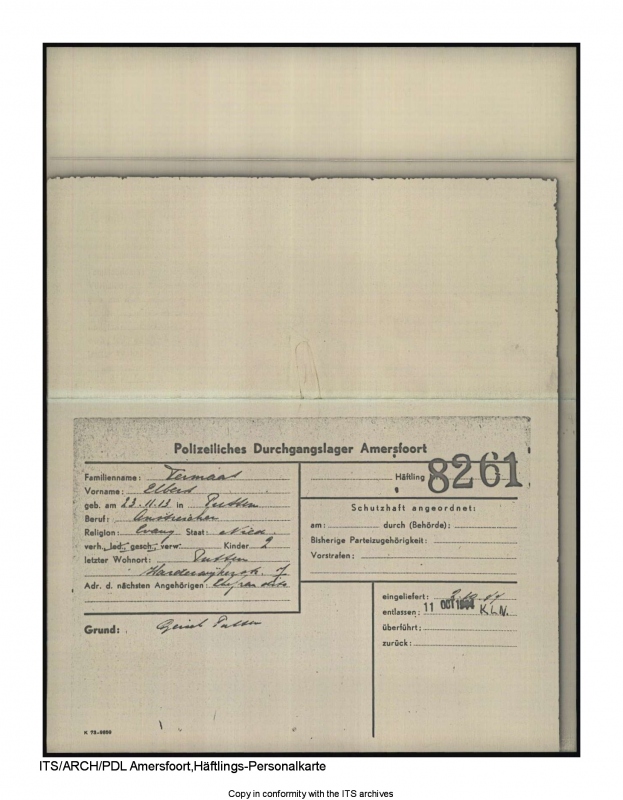 Polizeiliches Durchgangslager Amersfoort
Familienname: Vermaas
Häftling 8261
Vorname: Elbert
geb. am 23.11.13 in Putten
Beruf: Anstreicher
Religion: Evang Staat: Niederl.
verh., led., gesch., verw. Kinder 2
letzter Wohnort: Putten
Harderwijkerstr. 7
Adr. d. nächsten Angehörigen: Ehefrau dito
Schutzhaft angeordnet:
am: durch (Behörde):
Bisherige Parteizugehörigkeit:
Vorstrafen:
Grund: Putten
eingeliefert: 2.10.44
entlassen: 11 OCT 1944 K.L.N.
überführt:
zurück:
K 73-5659
ITS/ARCH/PDL Amersfoort,Häftlings-Personalkarte
Copy in conformity with the ITS archives